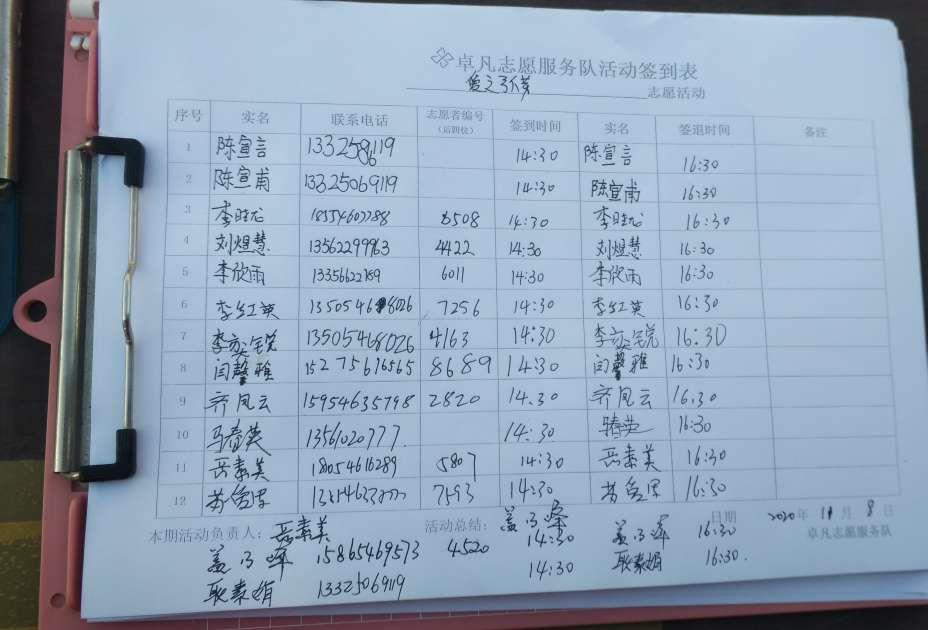 卓凡志愿服务队活动签到表
志愿活动
序号 实名 联系电话 志愿者编号(后四位) 签到时间 实名 签退时间 备注
1 陈宣言 14:30 陈宣言 16:30
2 陈宣甫 13325069119 14:30 陈宣甫 16:30
3 李 18554607788 6508 14:30 李 16:30
4 刘煜慧 13562299963 4422 14:30 刘煜慧 16:30
5 李欣雨 6011 14:30 李欣雨 16:30
6 李红英 7256 14:30 李红英 16:30
7 李奕锐 13505468026 4163 14:30 李奕锐 16:30
8 闫馨雅 15275616565 8689 14:30 闫馨雅 16:30
9 齐凤云 15954635798 2820 14:30 齐凤云 16:30
10 马春英 13561020777 14:30 春英 16:30
11 岳素美 18054616289 5807 14:30 岳素美 16:30
12 7193 14:30 16:30
本期活动负责人: 岳素美 活动总结: 盖 日期 2020年 11月 8日
盖 15865469573 4520 14:30 盖 16:30 卓凡志愿服务队
耿素娟 13325069119 14:30 耿素娟 16:30.